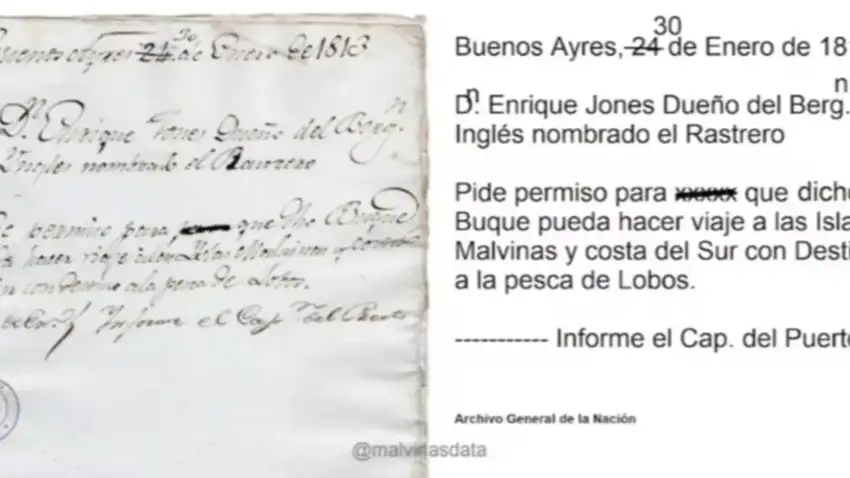 Buenos Ayres 24 30 de Enero de 1813
Dn. Enrique Jones Dueño del Bergn.
Ingles nombrado el Rastrero
permiso para que dho Buque
hacer viaje a las Islas Malvinas y costa
con destino a la pesca de Lobos.
Informe el Capn. del Puerto
30
Buenos Ayres, 24 de Enero de 18
n
Dn. Enrique Jones Dueño del Berg.
Inglés nombrado el Rastrero
Pide permiso para xxxxx que dich
Buque pueda hacer viaje a las Isla
Malvinas y costa del Sur con Desti
a la pesca de Lobos.
----------- Informe el Cap. del Puert
Archivo General de la Nación
@malvinasdata